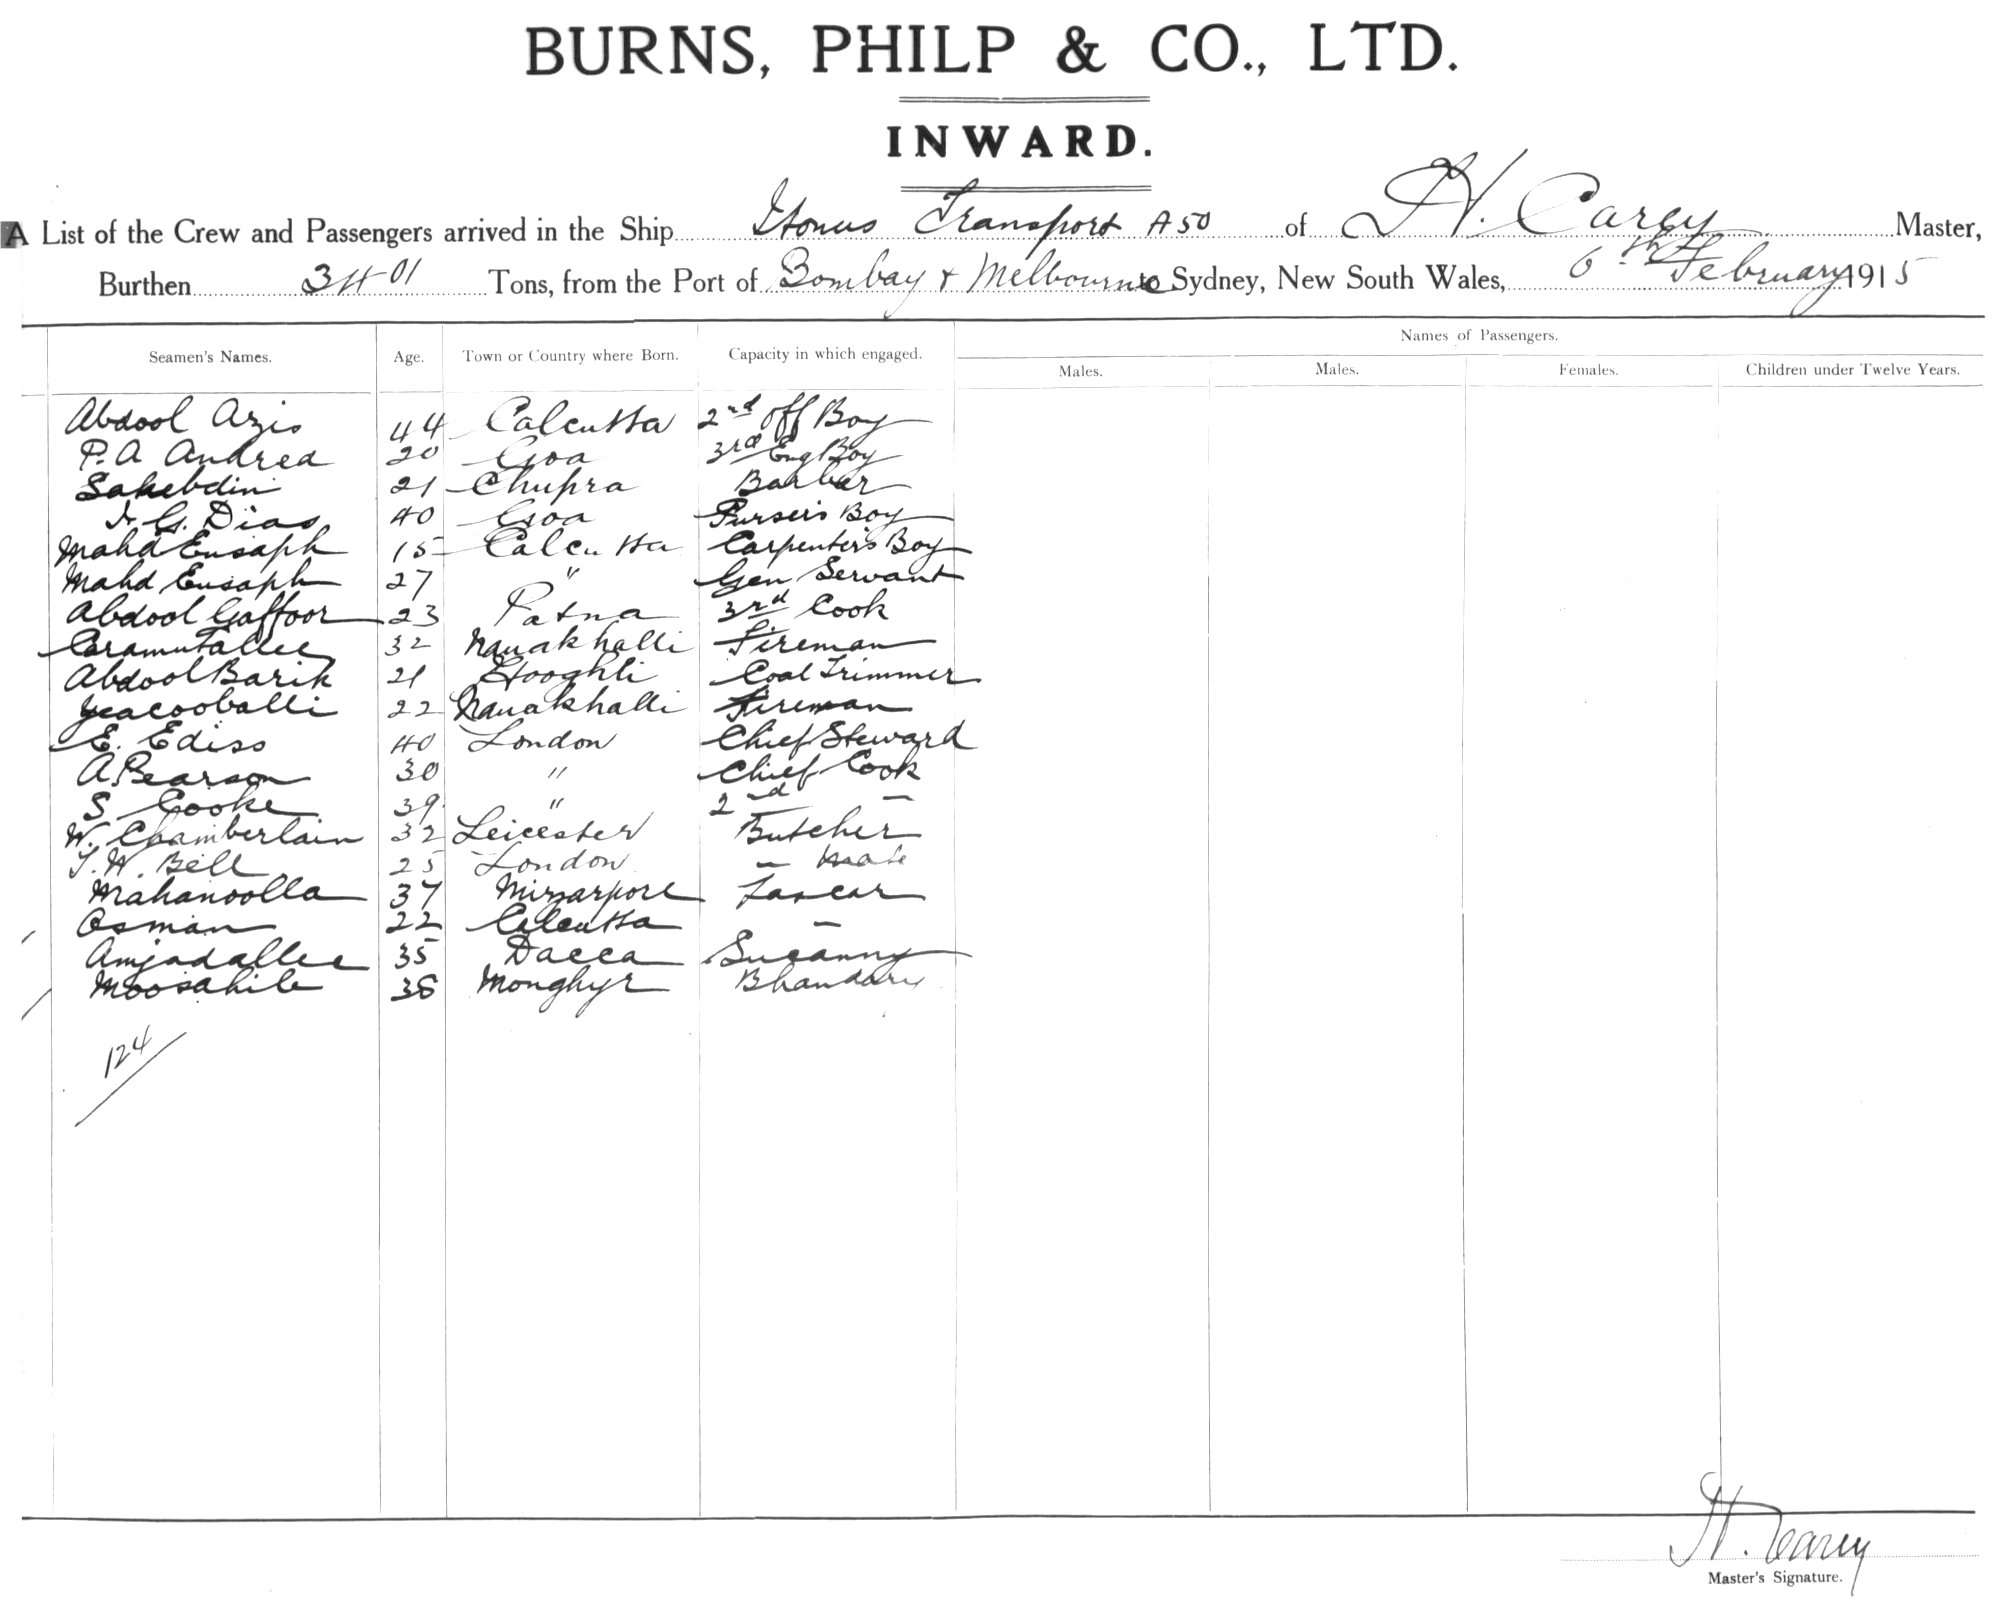 BURNS, PHILP & CO., LTD.
INWARD.
A List of the Crew and Passengers arrived in the Ship Itonus Transport A50 of H. Carey Master,
Burthen 3401 Tons, from the Port of Bombay & Melbourne to Sydney, New South Wales, 6th February 1915
Names of Passengers.
Seamen's Names. Age. Town or Country where Born. Capacity in which engaged. Males. Males. Females. Children under Twelve Years.
Abdool Azis 44 Calcutta 2nd Off Boy
P. A Andrea 20 Goa 3rd Eng Boy
Sakebdin 21 Chupra Barber
G. Dias 40 Goa Purser's Boy
Mahd Eusaph 15 Calcutta Carpenter's Boy
Mahd Eusaph 27 " Gen Servant
Abdool Gaffoor 23 Patna 3rd Cook
Caramutallee 32 Nauakhalli Fireman
Abdool Barik 21 Hooghli Coal Trimmer
Yeacooballi 22 Nauakhalli Fireman
E. Ediss 40 London Chief Steward
A. Pearson 30 " Chief Cook
S Cooke 39 " 2nd —
W. Chamberlain 32 Leicester Butcher
T. W. Bell 25 London — Mate
Mahanoolla 37 Mirzarpore Lascar
Osman 22 Calcutta —
Amjadallee 35 Dacca Sucanny
Moosahib 38 Monghyr Bhandary
124
H. Carey
Master's Signature.